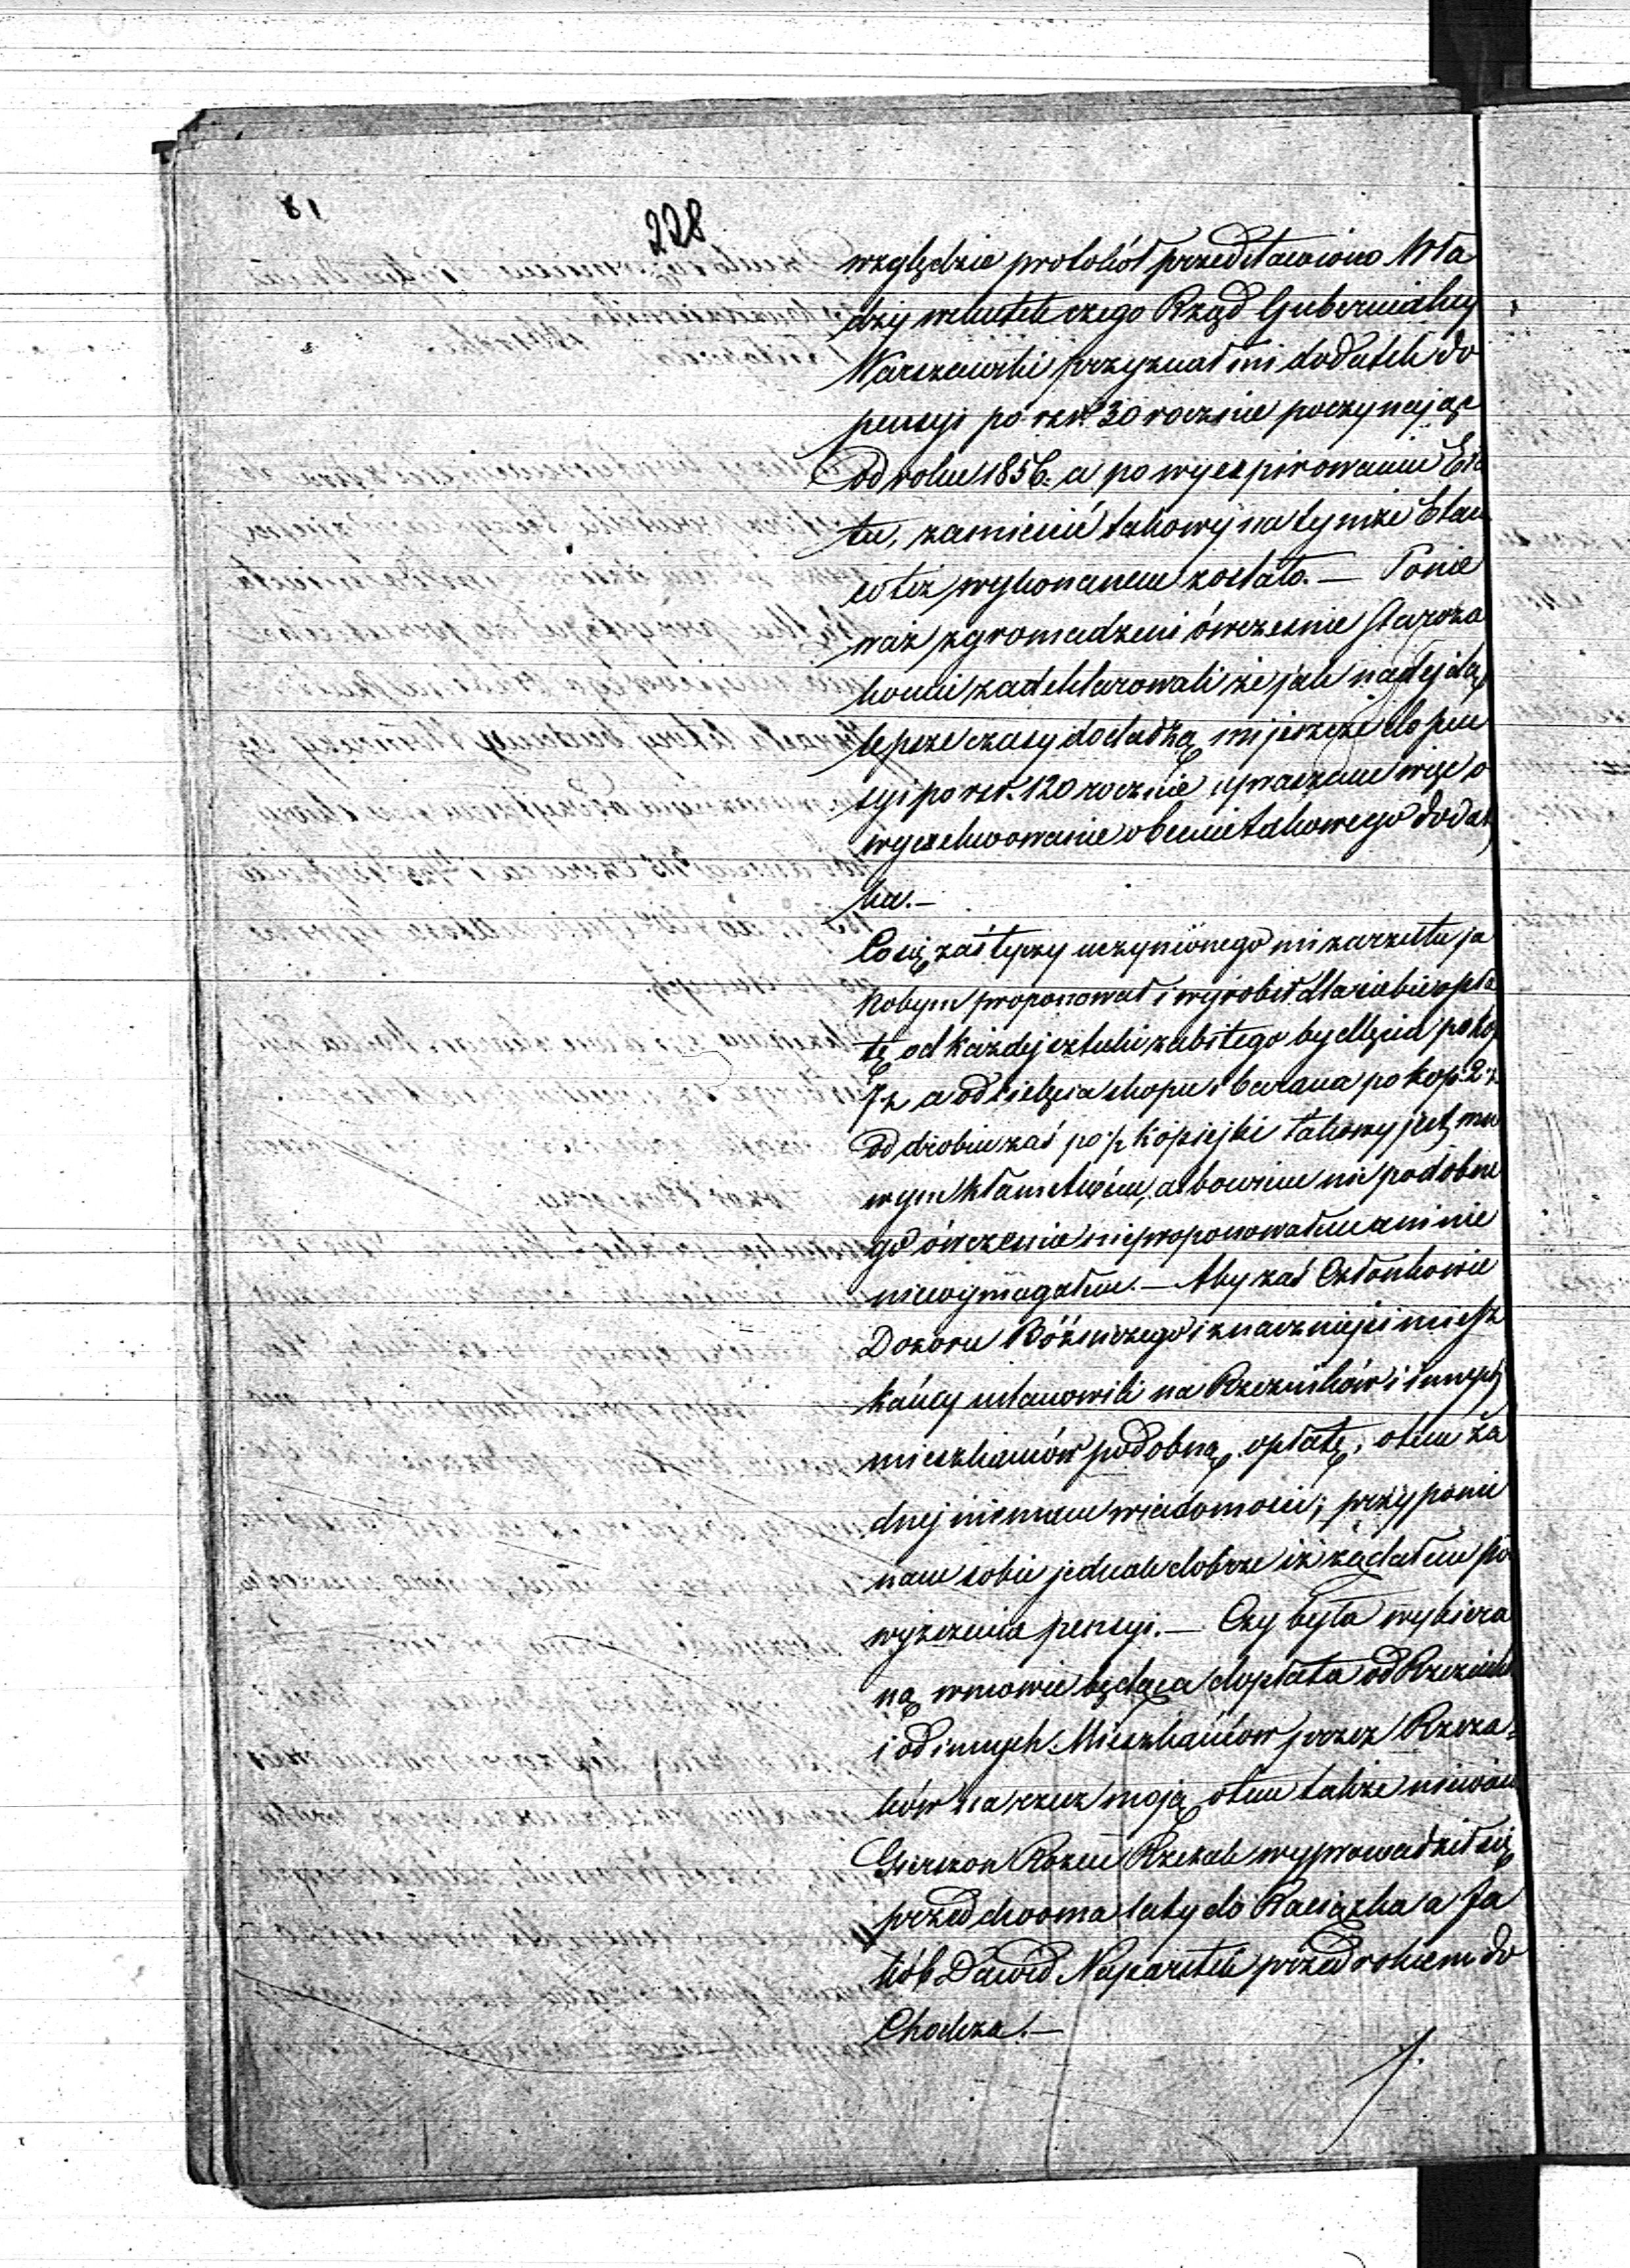 81
228
względzie protokół przedstawiono Wła
dzy wskutek czego Rząd Gubernialny
Warszawski przyznał mi dodatek do
pensyi po rsr. 30 rocznie poczynając
od roku 1856. a po wyexpirowaniu Eta
tu, zamieścić takowy na tymże Etac
co też wykonanem zostało. — Ponie
waż zgromadzeni ówcześnie Staroza
konni zadeklarowali że jak nadejdą
lepsze czasy dodadzą mi jeszcze do pen
syi po rsr. 120 rocznie upraszam więc o
wyexekwowanie obecnie takowego dodat
ku. —
Co się zaś tyczy uczynionego mi zarzutu ja
kobym proponował i wyrobił dla siebie opła
tę od każdej sztuki zabitego bydlęcia po kop
7½ a od cielęcia skopu i barana po kop. 2½
od drobiu zaś po ½ kopiejki takowy jest mu
wym kłamstwem, albowiem nic podobne
go ówcześnie nieproponowałem ani nie
niewymagałem. — Aby zaś Członkowie
Dozoru Bóżniczego i znaczniejsi miesz
kańcy ustanowili na Rzezników i innych
mieszkańców podobną opłatę, o tem ża
dnej niemam wiadomości; przypomi
nam sobie jednak dobrze iż żądałem po
wyższenia pensyi. — Czy była wybiera
ną w mowie będąca dopłata od Rzeznik
i od innych Mieszkańców przez Rzeza=
ków na rzecz moją o tem także niewiem
Gierszon Rozen Rzezak wyprowadził się
przed dwoma laty do Raciążka a Ja
kób Dawid Naparstek przed rokiem do
Chodcza. —